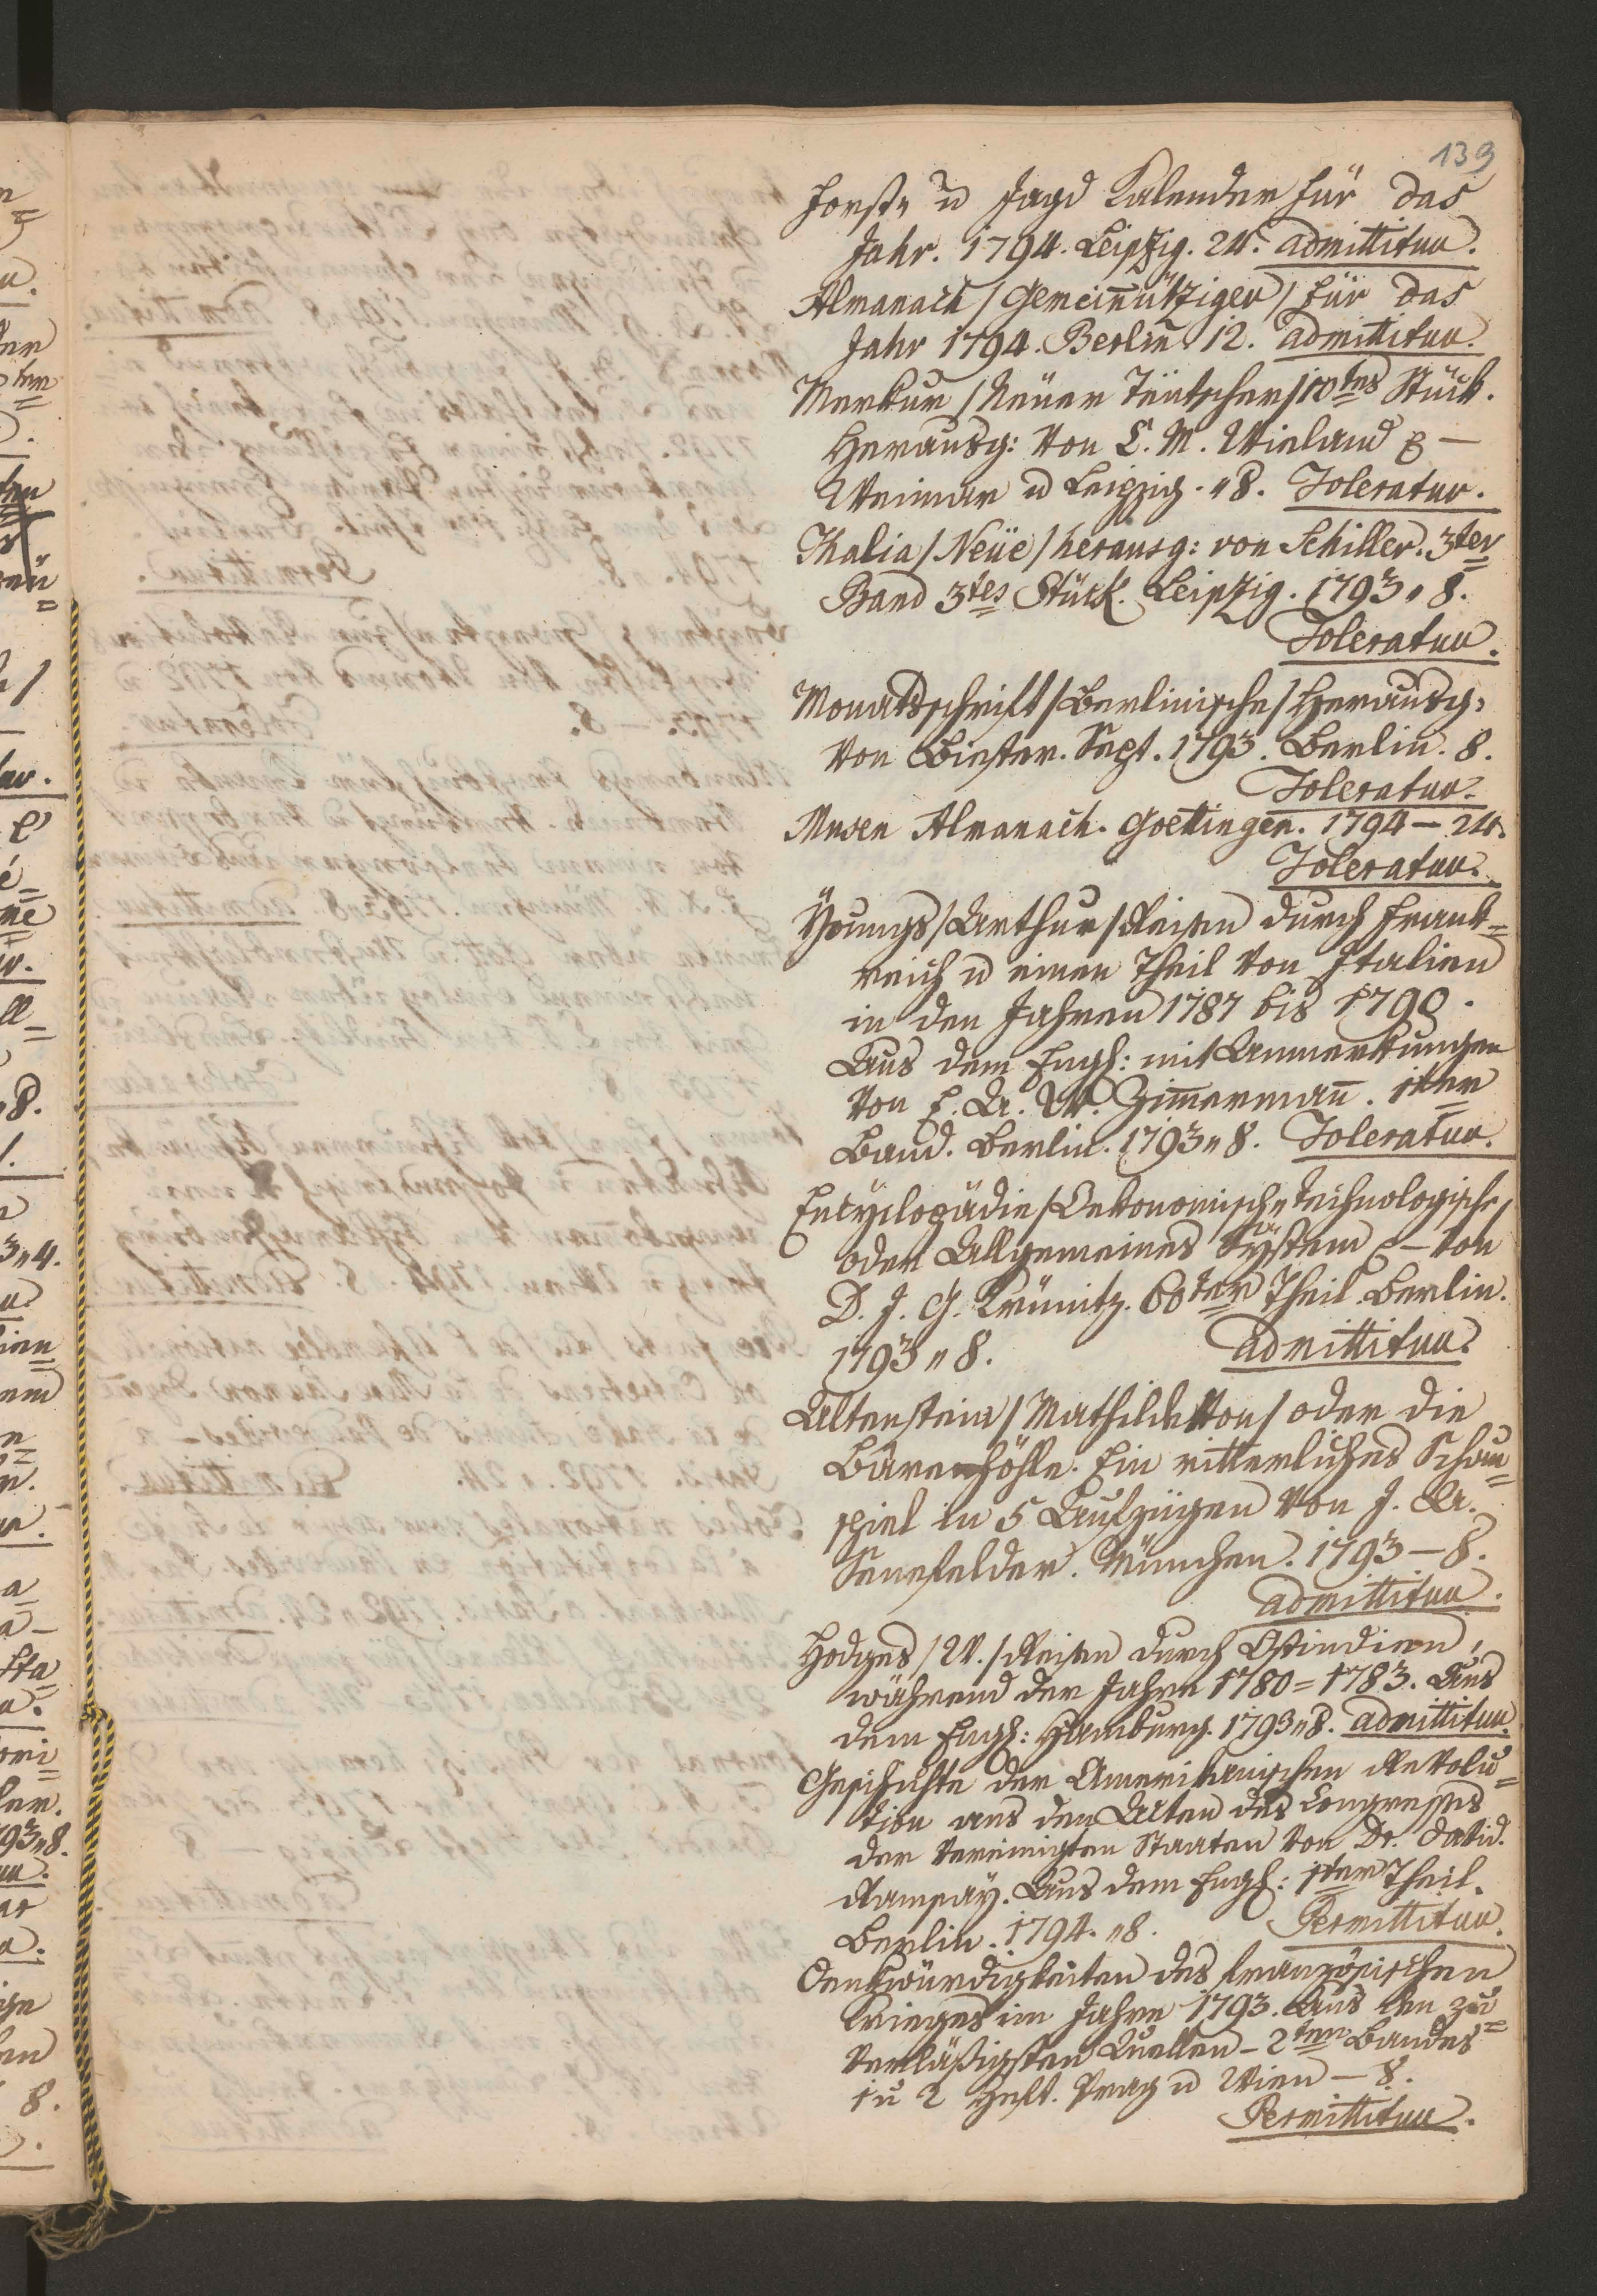 139
Forst„ u Jagd Kalender für das
Jahr. 1794. Leipzig. 24. admittitur.
Almanach / Gemeinnütziger / für das
Jahr 1794. Berlin 12. admittitur.
Merkur / Neüer Teutscher / 10tes Stück.
Herausg: von C. M. Wieland &c –
Weimar u Leipzig. „ 8. Toleratur.
Thalia / Neüe / herausg: von Schiller. 3ter
Band 3tes Stück. Leipzig. 1793 „ 8.
Toleratur.
Monatsschrift / Berlinische / Herausg:
von Biester. Sept. 1793. Berlin. 8.
Toleratur.
Musen Almanach. Goettingen. 1794 – 24.
Toleratur.
Youngs / Arthur / Reisen durch Frank=
reich u einen Theil von Italien
in den Jahren 1787 bis 1790.
Aus dem Engl: mit Anmerkungen
von E. A. W. Zimermañ. 1ter
Band. Berlin. 1793 „ 8. Toleratur.
Encyclopädie / Oekonomisch„ technologische /
oder Allgemeines System &c – von
D. J. G. Krünitz. 60ter Theil. Berlin.
1793 „ 8. admittitur.
Altenstein / Mathilde von / oder die
Bärenhöhle. Ein ritterliches Schau=
spiel in 5 Aufzügen von J. A.
Senefelder. München. 1793 – 8.
admittitur.
Hodges / W. / Reisen durch Ostindien,
während der Jahre 1780 = 1783. Aus
dem Engl: Hamburg. 1793 „ 8. admittitur.
Geschichte der Amerikanischen Revolu=
tion aus den Acten des Congresses
der vereinigten Staaten von Dr. David.
Ramsay. Aus dem Engl: 1ter Theil.
Berlin. 1794. „ 8. Permittitur.
Denkwürdigkeiten des französischen
Krieges im Jahre 1793. Aus den zu=
verläßigsten Quellen – 2ten Bandes
1 u 2 Heft. Prag u Wien – 8.
Permittitur.